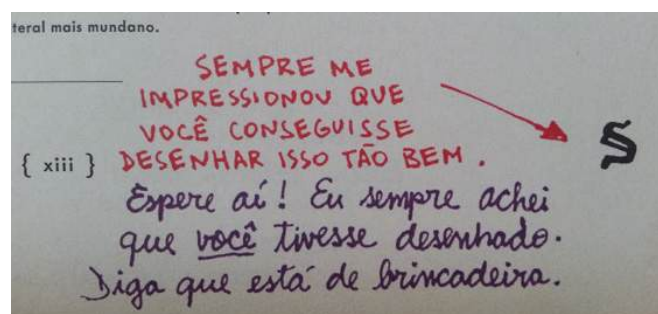 teral mais mundano.
SEMPRE ME
IMPRESSIONOU QUE
VOCÊ CONSEGUISSE
{ xiii } DESENHAR ISSO TÃO BEM.
Espere aí! Eu sempre achei
que você tivesse desenhado.
Diga que está de brincadeira.